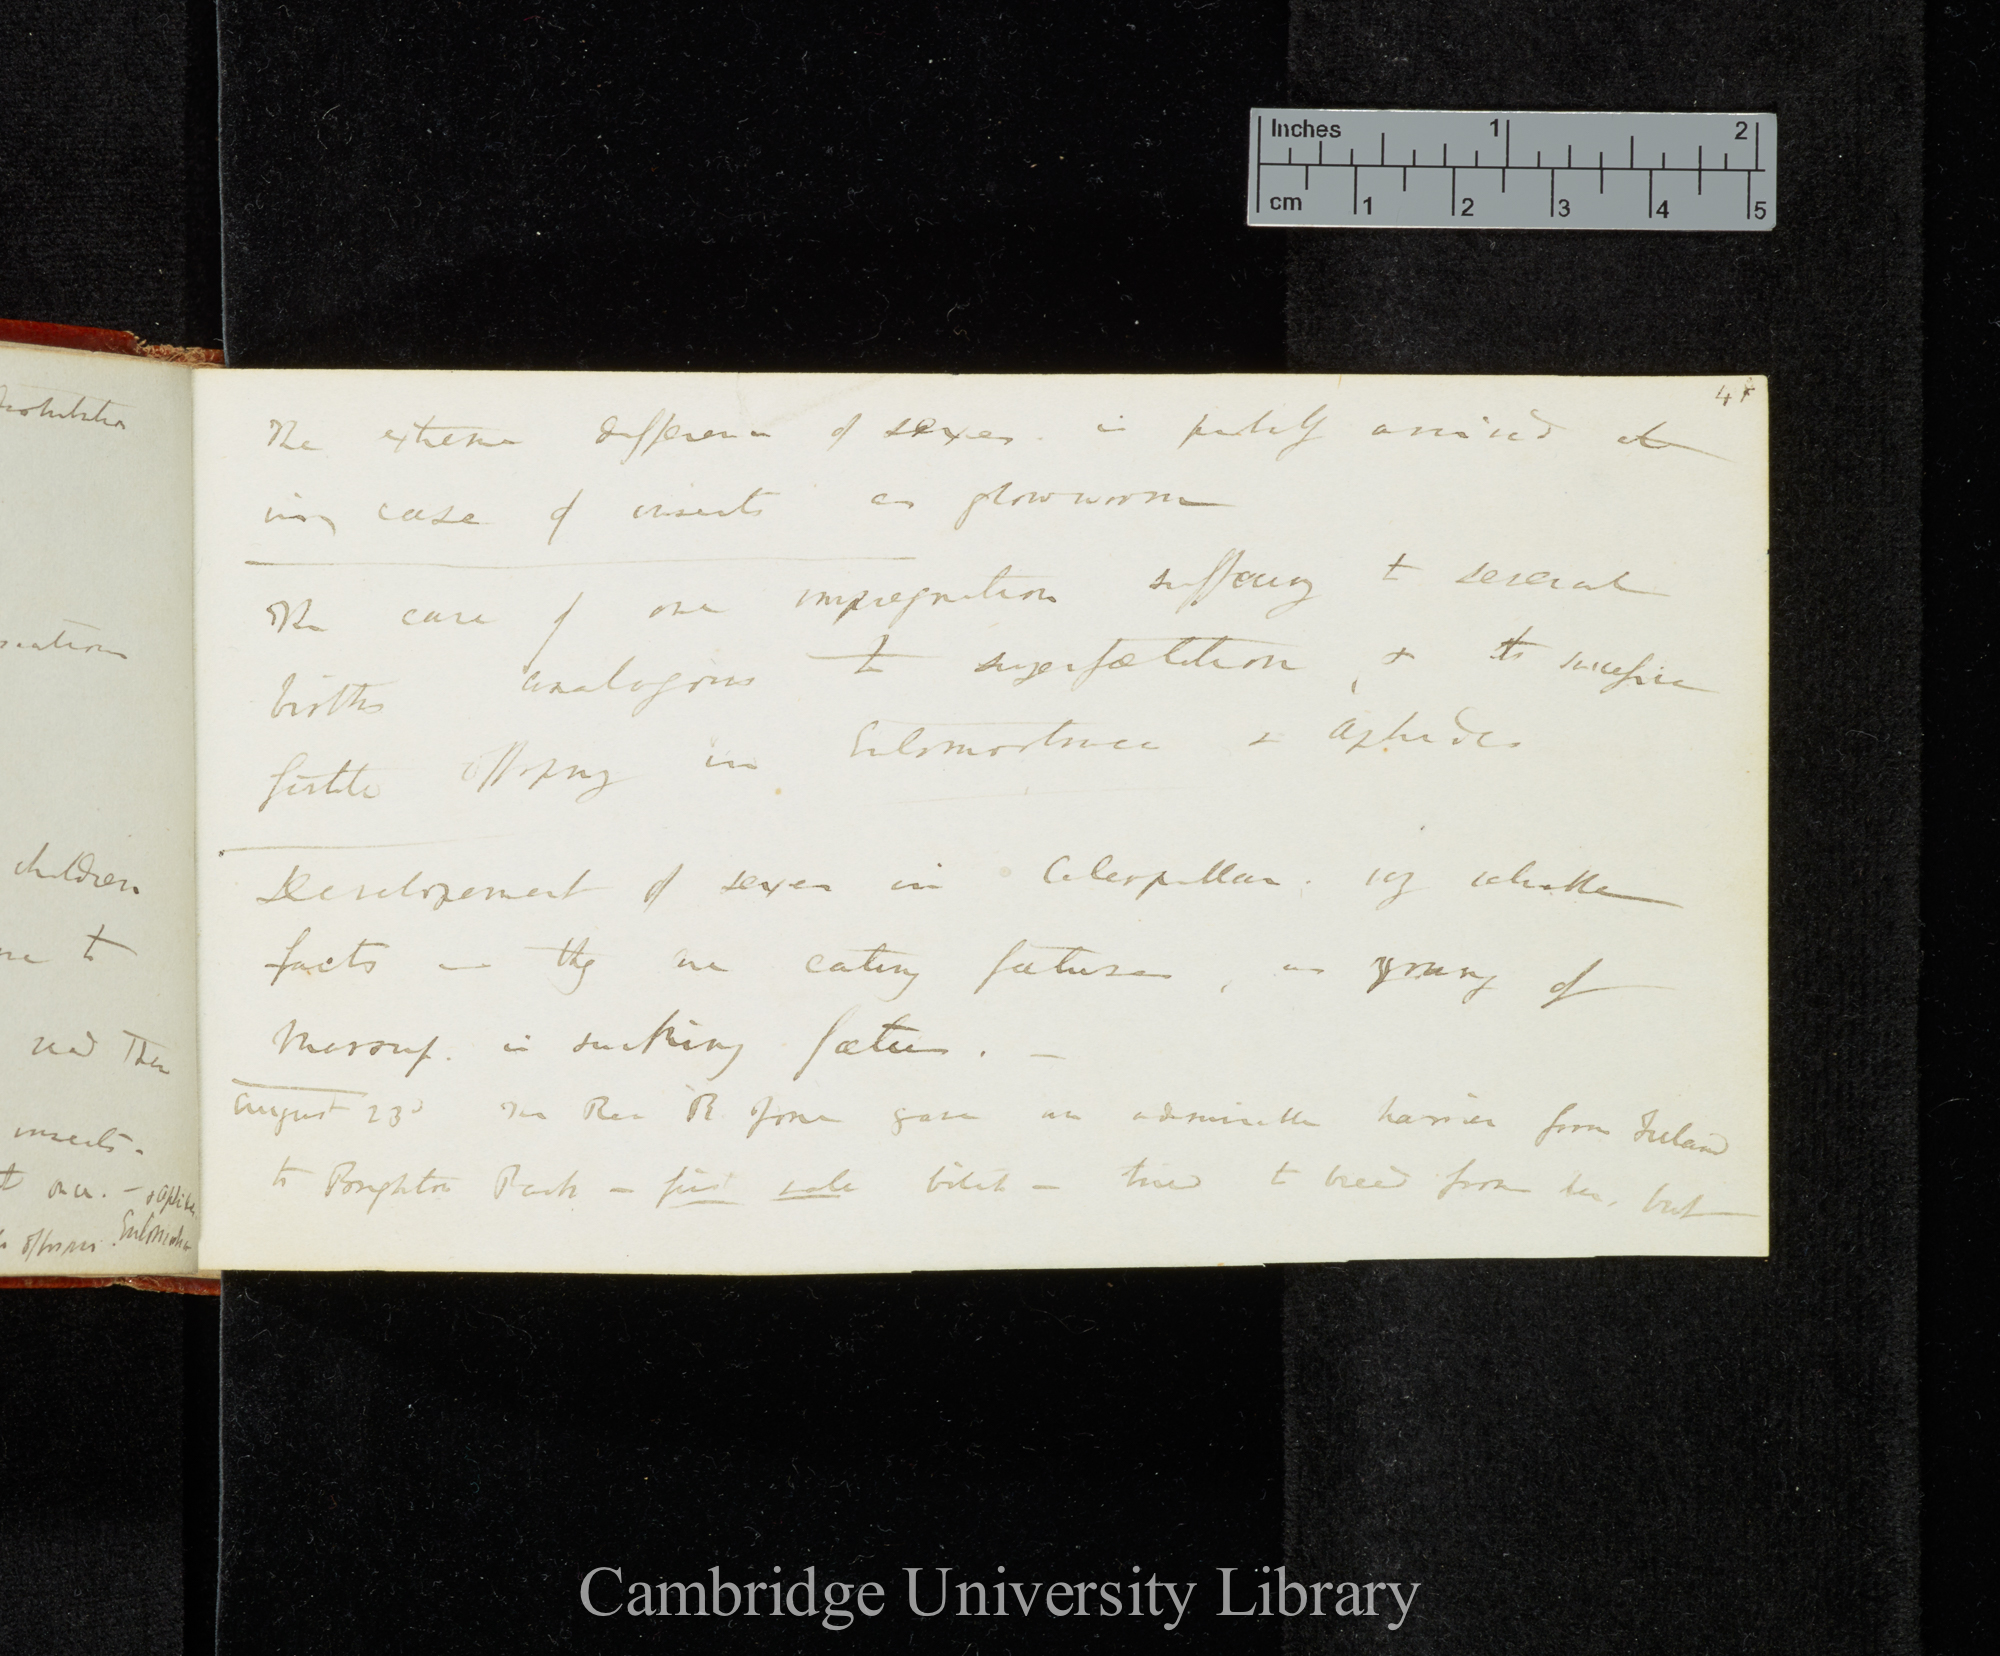 prohibition
children
to
and then
insects.
once. — & aphides
Entomostraca
Inches 1 2
cm 1 2 3 4 5
The extreme difference of sexes is probably arrived at
in case of insects as glowworm
The case of one impregnation sufficing to several
births analogous to superfœtation, & to successive
fertile offspring in Entomostraca & Aphides
Developement of sexes in Caterpillar. very valuable
facts — they are eating fœtuses, as young of
Marsup. is sucking fœtus. —
August 23d The Rev R. Jones gave an admirable harrier from Ireland
to Brighton Pack — first rate bitch — tried to breed from her, but
Cambridge University Library